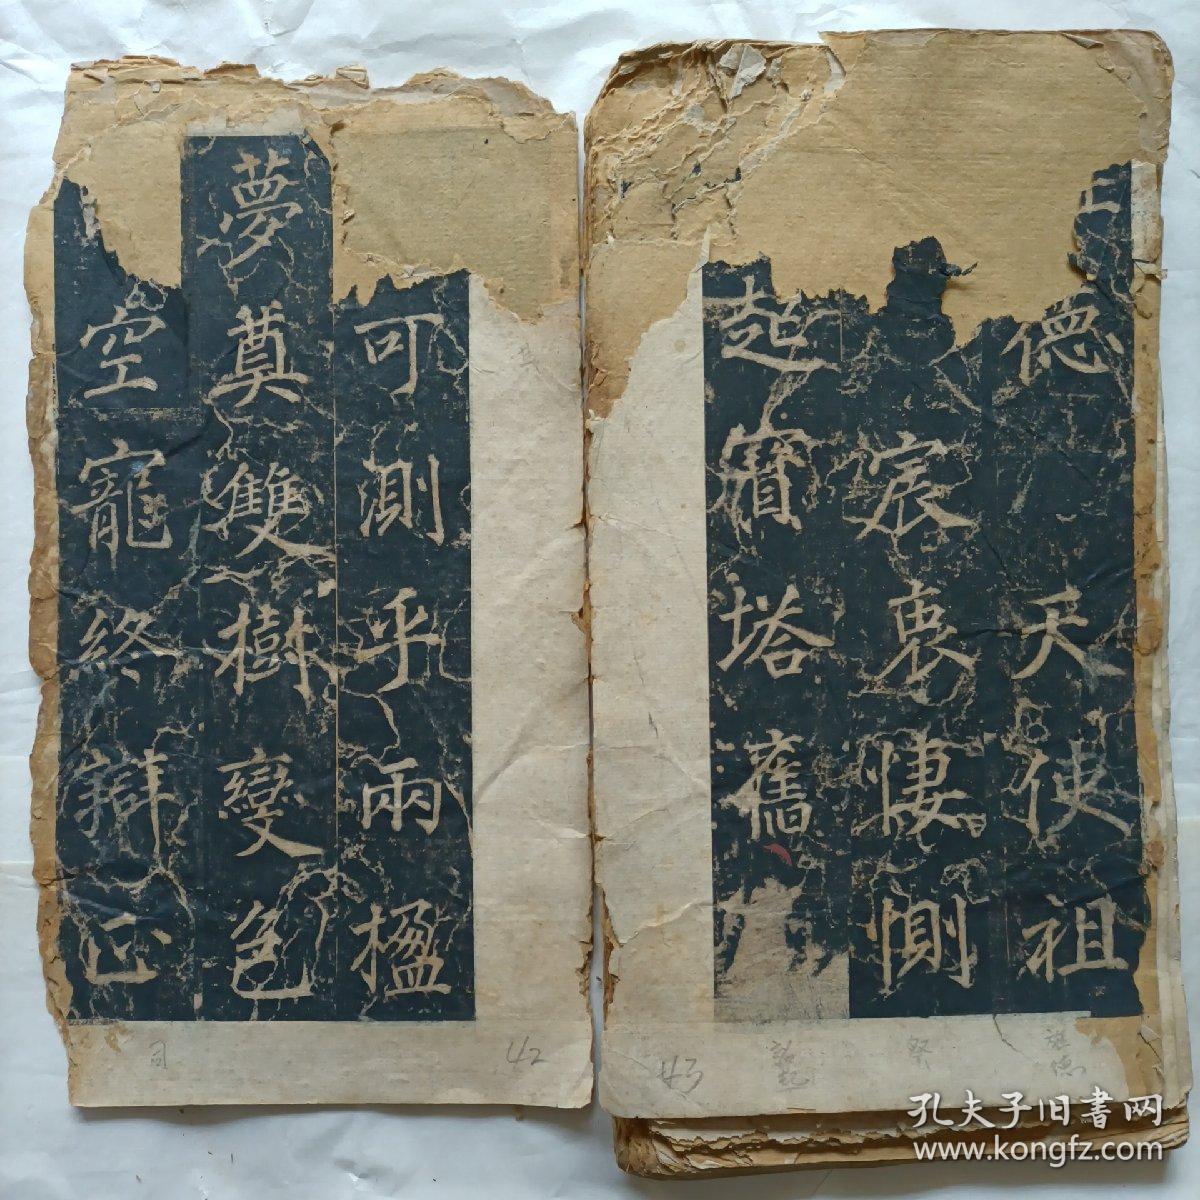 可測乎兩楹
夢奠雙樹變色
空寵終辯正
42
司
德天使祖
宸衷悽惻
起寶塔舊
旌德
祭
43
孔夫子旧書网
www.kongfz.com